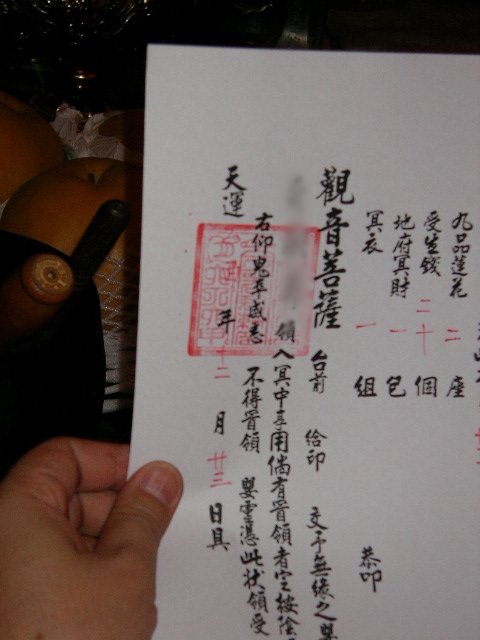 九品蓮花 二 座
受生錢 二十 個
地府冥財 一 包
冥衣 一 組 恭叩
觀音菩薩 台前 給印 交予無緣之嬰
領入冥中享用倘有冒領者定按陰
右仰鬼卒咸悉 不得冒領 嬰靈憑此狀領受
天運 年 十二 月 廿三 日具